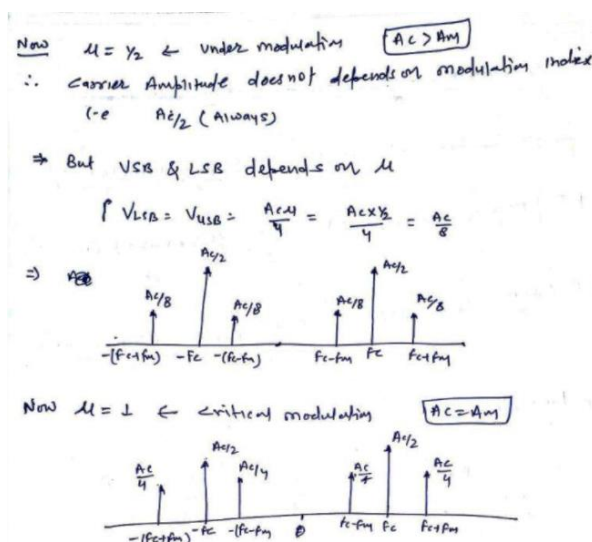 Now μ = 1/2 ← under modulation Ac > Am
∴ carrier Amplitude does not depends on modulation index
i-e Ac/2 (Always)
⇒ But VSB & LSB depends on μ
VLSB = VUSB = Acμ/4 = Ac×1/2/4 = Ac/8
⇒)
Ac/2 Ac/2
Ac/8 Ac/8 Ac/8 Ac/8
-(fc+fm) -fc -(fc-fm) fc-fm fc fc+fm
Now μ = 1 ← critical modulation Ac = Am
Ac/2 Ac/2
Ac/4 Ac/4 Ac/4 Ac/4
-(fc+fm) -fc -(fc-fm) 0 fc-fm fc fc+fm